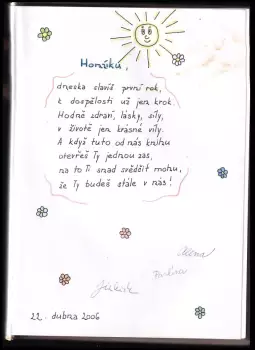 Honzíku,
dneska slavíš první rok,
k dospělosti už jen krok.
Hodně zdraví, lásky, síly,
v životě jen krásné víly.
A když tuto od nás knihu
otevřeš Ty jednou zas,
na to Ti snad svědčit mohu,
že Ty budeš stále v nás!
Alena
Jakub
22. dubna 2006